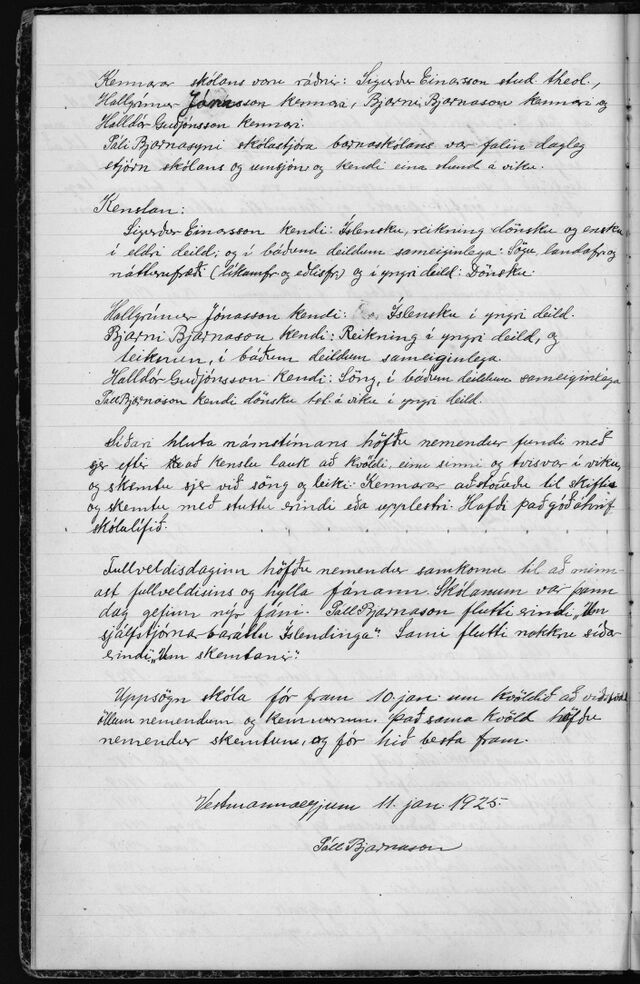 Kennarar skólans voru ráðnir: Sigurður Einarsson stud. theol.,
Hallgrímur Jónasson kennari, Bjarni Bjarnason kennari og
Halldór Guðjónsson kennari.
Páli Bjarnasyni skólastjóra barnaskólans var falin dagleg
stjórn skólans og umsjón og kendi eina stund á viku.
Kenslan:
Sigurður Einarsson kendi: Íslensku, reikning dönsku og ensku
í eldri deild; og í báðum deildum sameiginlega: Sögu, landafr. og
náttúrufræði (líkamsfr. og eðlisfr.) og í yngri deild: Dönsku.
Hallgrímur Jónasson kendi: Íslensku í yngri deild.
Bjarni Bjarnason kendi: Reikning í yngri deild, og
teiknun, í báðum deildum sameiginlega.
Halldór Guðjónsson kendi: Söng, í báðum deildum sameiginlega
Páll Bjarnason kendi dönsku á viku í yngri deild.
Síðari hluta námstímans höfðu nemendur fundi með
sjer eftir að kenslu lauk að kvöldi, einu sinni og tvisvar í viku,
og skemtu sjer við söng og leiki. Kennarar aðstoðuðu til skiftis
og skemtu með stuttu erindi eða upplestri. Hafði það góð áhrif
skólalífið.
Fullveldisdaginn höfðu nemendur samkomu til að minn-
ast fullveldisins og hylla fánann. Skólanum var þann
dag gefinn nýr fáni. Páll Bjarnason flutti erindi „Um
sjálfstjórnabaráttu Íslendinga“. Sami flutti nokkru síðar
erindi „Um skemtanir“.
Uppsögn skóla fór fram 10. jan. um kvöldið að viðstödd
öllum nemendum og kennurum. Það sama kvöld höfðu
nemendur skemtun, og fór hið besta fram.
Vestmannaeyjum 11. jan. 1925.
Páll Bjarnason